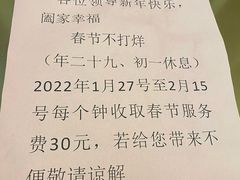 各位领导新年快乐，
阖家幸福
春节不打烊
（年二十九、初一休息）
2022年1月27号至2月15
号每个钟收取春节服务
费30元，若给您带来不
便敬请谅解